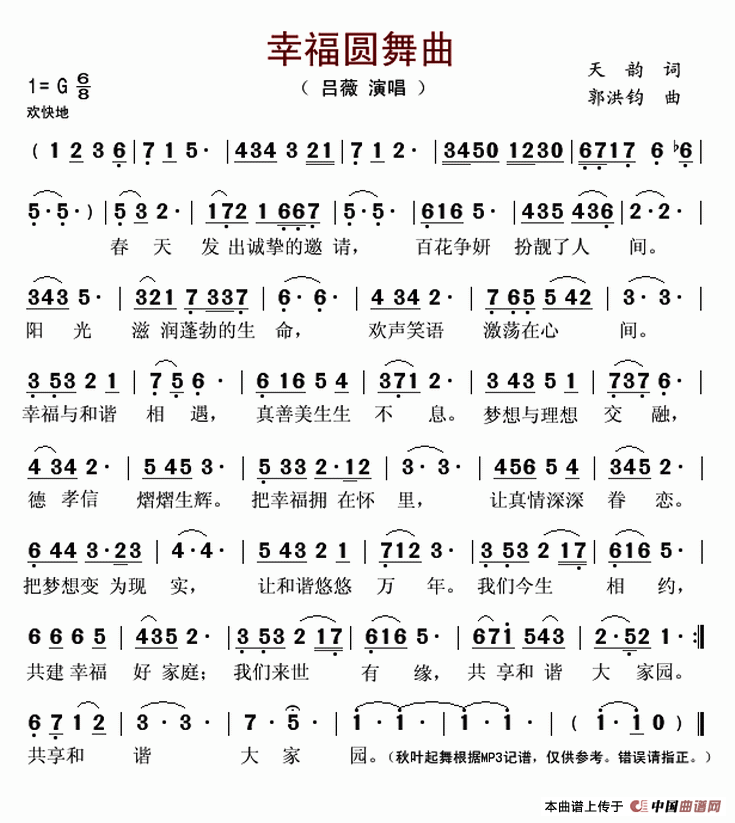 幸福圆舞曲
1= G 6/8
（ 吕薇 演唱 ）
天 韵 词
郭洪钧 曲
欢快地
( 1 2 3 6 | 7 1 5· | 434 3 21 | 7 1 2· | 3450 1230 | 6717 6 ♭6 |
5·5· ) | 5 3 2· | 172 1 667 | 5·5· | 6165 5· | 435 436 | 2·2· |
春 天 发 出诚挚的邀 请， 百花争妍 扮靓了人 间。
343 5· | 321 7 337 | 6· 6· | 4 34 2· | 7 65 5 42 | 3· 3· |
阳 光 滋 润蓬勃的生 命， 欢声笑语 激荡在心 间。
3 53 2 1 | 7 5 6· | 6 16 5 4 | 371 2· | 3 43 5 1 | 737 6· |
幸福与和谐 相 遇， 真善美生生 不 息。 梦想与理想 交 融，
4 34 2· | 5 45 3· | 5 33 2·12 | 3· 3· | 456 5 4 | 345 2· |
德 孝信 熠熠生辉。 把幸福拥 在怀 里， 让真情深深 眷 恋。
6 44 3·23 | 4·4· | 5 43 2 1 | 712 3· | 3 53 2 17 | 616 5· |
把梦想变 为现 实， 让和谐悠悠 万 年。 我们今生 相 约，
6 6 6 5 | 435 2· | 3 53 2 17 | 616 5· | 671 543 | 2·52 1· :|
共建 幸福 好 家庭； 我们来世 有 缘， 共 享和 谐 大 家园。
6 7 1 2 | 3· 3· | 7· 5· | 1·1· | 1·1· | ( 1·10 ) |
共享和 谐 大 家 园。（秋叶起舞根据MP3记谱，仅供参考。错误请指正。）
本曲谱上传于 中国曲谱网